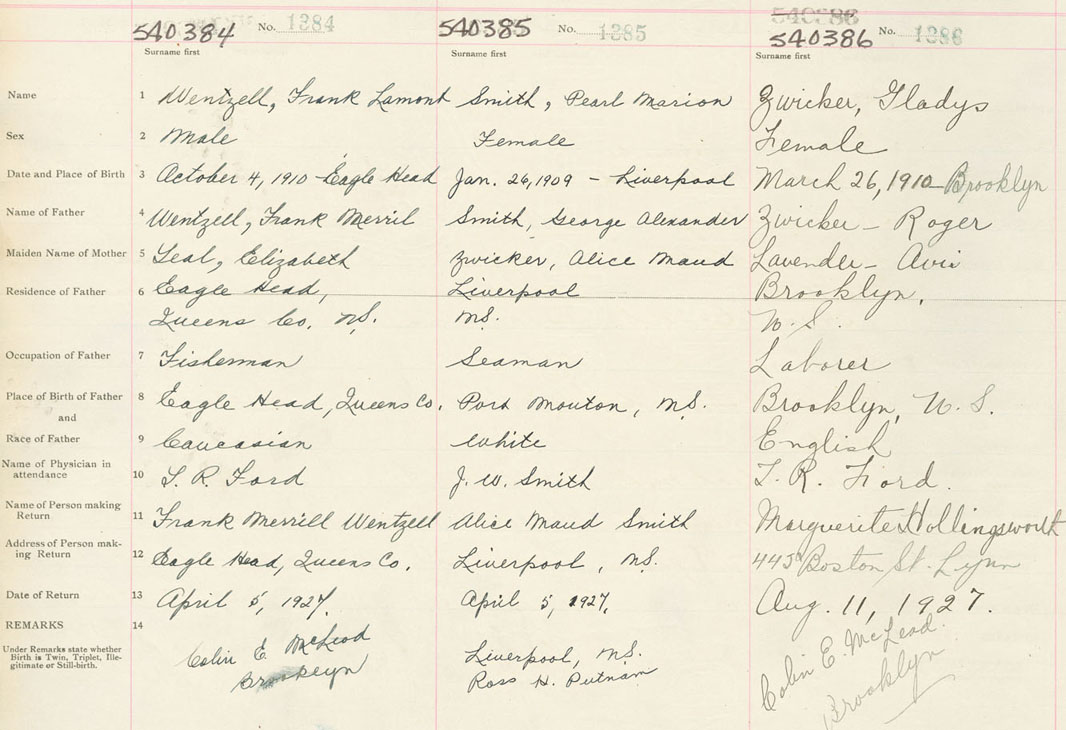 540384 No. 1284 540385 No. 1285 540386 540386 No. 1286
Surname first Surname first Surname first
Name 1 Wentzell, Frank Lamont Smith, Pearl Marion Zwicker, Gladys
Sex 2 Male Female Female
Date and Place of Birth 3 October 4, 1910 - Eagle Head Jan. 26, 1909 - Liverpool March 26, 1910 - Brooklyn
Name of Father 4 Wentzell, Frank Merril Smith, George Alexander Zwicker - Roger
Maiden Name of Mother 5 Leal, Elizabeth Zwicker, Alice Maud Lavender - Avis
Residence of Father 6 Eagle Head, Liverpool Brooklyn,
Queens Co. N.S. N.S. N.S.
Occupation of Father 7 Fisherman Seaman Laborer
Place of Birth of Father 8 Eagle Head, Queens Co. Port Mouton, N.S. Brooklyn, N.S.
and
Race of Father 9 Caucasian White English
Name of Physician in
attendance 10 T. R. Ford J. W. Smith T. R. Ford.
Name of Person making
Return 11 Frank Merrill Wentzell Alice Maud Smith Marguerite Hollingsworth
Address of Person mak-
ing Return 12 Eagle Head, Queens Co. Liverpool, N.S. 445 Boston St. Lynn
Date of Return 13 April 5, 1927. April 5, 1927. Aug. 11, 1927.
REMARKS 14
Under Remarks state whether
Birth is Twin, Triplet, Ille-
gitimate or Still-birth.
Colin E. McLeod
Brooklyn
Liverpool, N.S.
Ross H. Putnam
Colin E. McLead.
Brooklyn